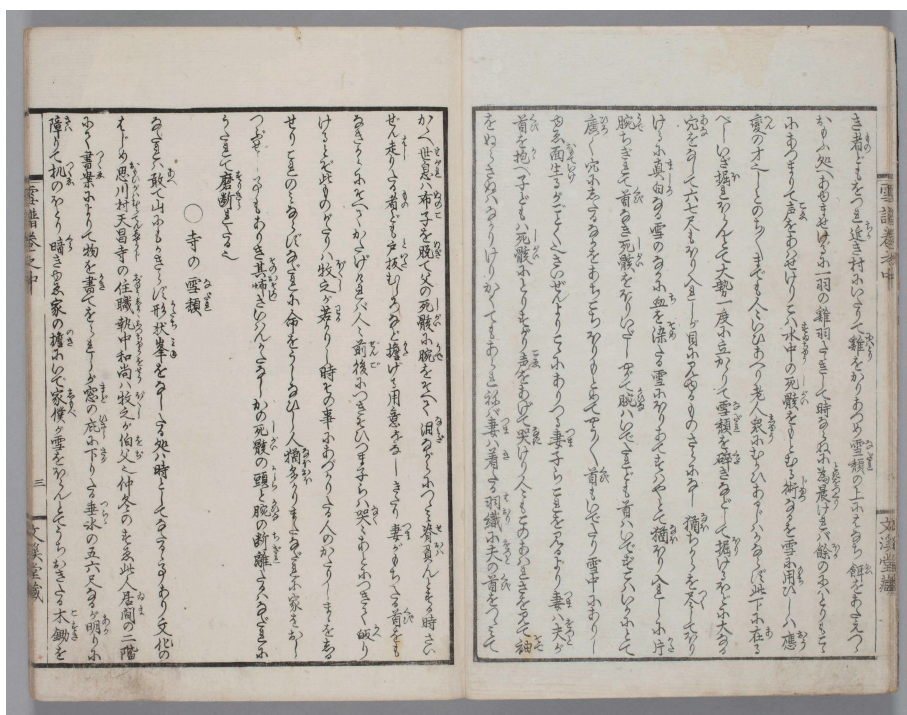 き者どもをつれ近き村にいたりて雞をかりあつめ雪頽の上にはなち餌をあたへつゝ
おもふ処へあゆませけるに一羽の雞羽たゝきして時ならぬに為晨ければ餘のにはとりもこゝ
にあつまりて声をあはせけりこは水中の死骸をもとむる術なるを雪に用ひしは應
変の才也しとのち〳〵までも人々いひあへり老人衆にむかひあるじはかならず此下に在る
べしいざ掘れほらんとて大勢一度に立かゝりて雪頽を砕きなどして掘けるほどに大なる
穴をなして六七尺もほり入れしが目に見ゆるものさらになし猶ちからを尽してほり
けるに真白なる雪のなかに血を染たる雪にほりあてすはやとて猶ほり入れしに片
腕ちぎれて首なき死骸をほりいだしやがて腕はいでたれども首はいでずこはいかにとて
廣く穴にしたるなかをあちこちほりもとめてやう〳〵首もいでたり雪中にありし
ゆゑ面生るがごとく也さいぜんよりこゝにありつる妻子らこれを見るより妻は夫が
首を抱へ子どもは死骸にとりすがり声をあげて哭けり人々もこのあはれさを見て袖
をぬらさぬはなかりけりかくてもあられねば妻は着たる羽織に夫の首をつゝみて
雪譜巻之中
文溪堂藏
かゝへ世息は布子を脱て父の死骸に腕をそへて泪ながらにつゝみ脊負んとする時さい
ぜん走りたる者ども戸板むしろなど擔げる用意をなしきたり妻がもちたる首をも
なきからにそへてかたげければ人々前後につきそひつま子らは哭〳〵あとにつきて皈り
けるとぞ此ものがたりは牧之が若かりし時その事にあづかりたる人のかたりしまゝをしる
せりこれのみならずなだれに命をうしなひし人猶多かりまたなだれに家をおし
つぶせし事もありき其怖さいはんかたなしかの死骸の頭と腕の断離たるはなだれに
うたれて磨断れたる也
○寺の雪頽
なだれは敢て山にもかぎらず形状峯をなしたる処は時としてなだるゝ事あり文化の
はじめ思川村天昌寺の住職執中和尚は牧之が伯父也仲冬のすゑ此人居間の二階
にて書案によりて物を書てをられしが窓の庇に下りたる垂氷の五六尺なるが明りに
障りて机のほとり暗きゆゑ家の檐にいで家僕が雪をほらんとてうちおきたる木鋤を
雪譜巻之中
三
文溪堂藏